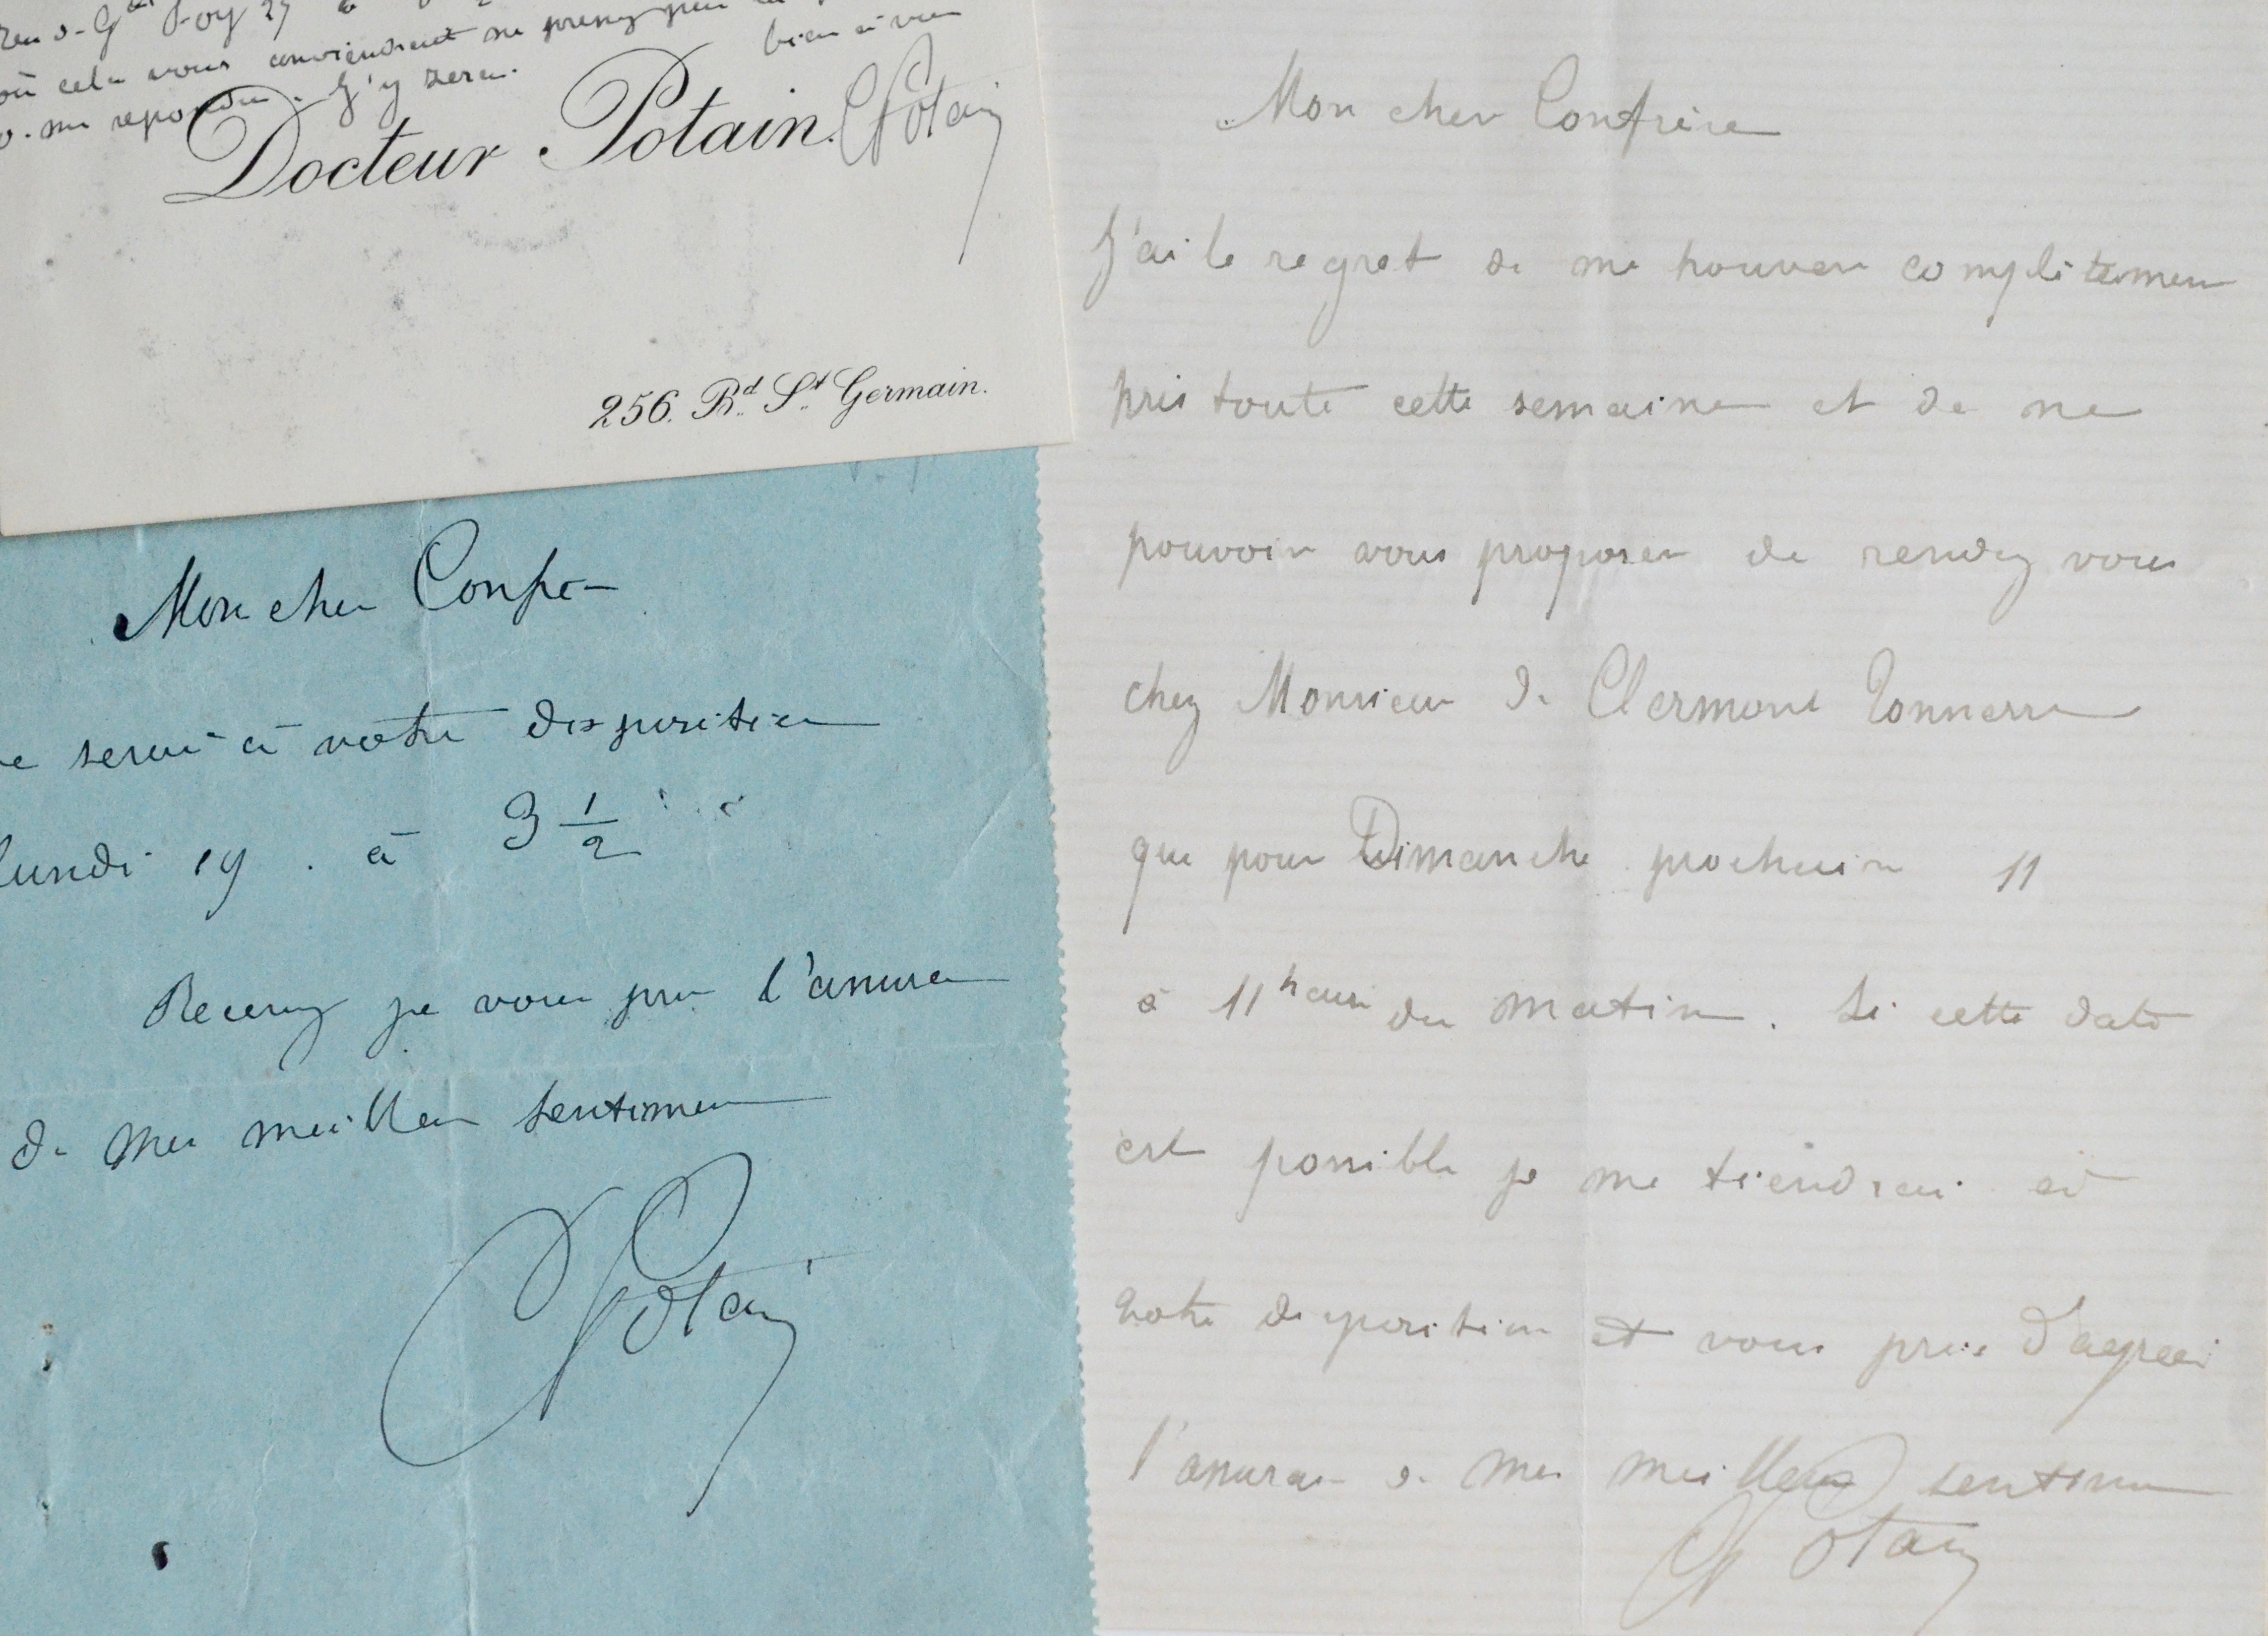 où cela vous conviendrait ne prenez pas la
bien à vous
me répondre. J'y serai.
Docteur Potain.
Potain
256. Bd. St. Germain.
Mon cher Confre
serai à votre disposition
lundi 19. à 3 1/2
Recevez je vous prie l'assurance
de mes meilleurs sentiments
Potain
Mon cher Confrère
J'ai le regret de me trouver complètement
pris toute cette semaine et de ne
pouvoir vous proposer de rendez vous
chez Monsieur de Clermont Tonnerre
que pour Dimanche prochain 11
à 11 heures du matin. Si cette date
est possible je me tiendrai à
votre disposition et vous prie d'agréer
l'assurance de mes meilleurs sentiments
Potain